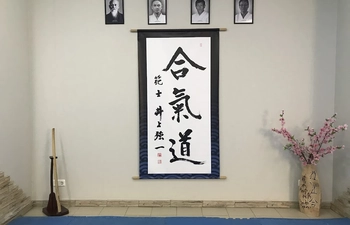 合氣道
範士 井上強一